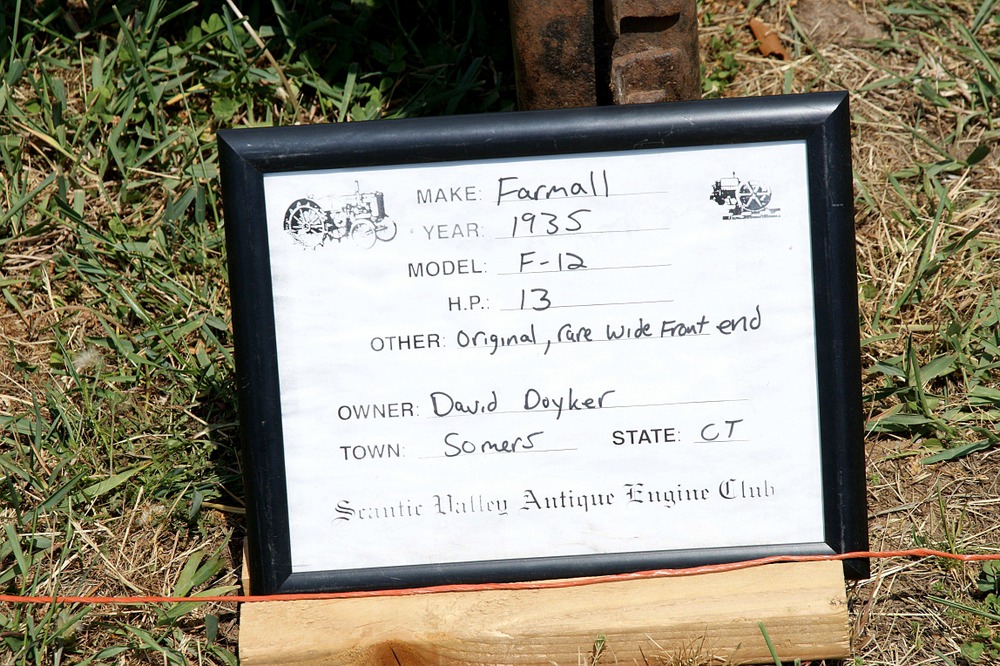 MAKE: Farmall
YEAR: 1935
MODEL: F-12
H.P.: 13
OTHER: Original, rare wide Front end
OWNER: David Doyker
TOWN: Somers STATE: CT
Scantic Valley Antique Engine Club